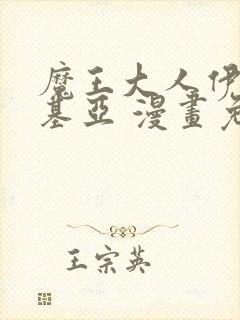 魔王大人伊
基亞 漫畫免
王宗英